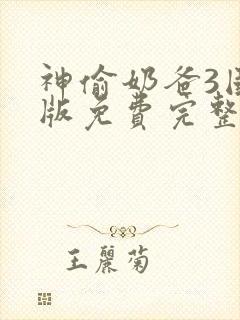 神偷奶爸3国
版免费完整
王麗菊